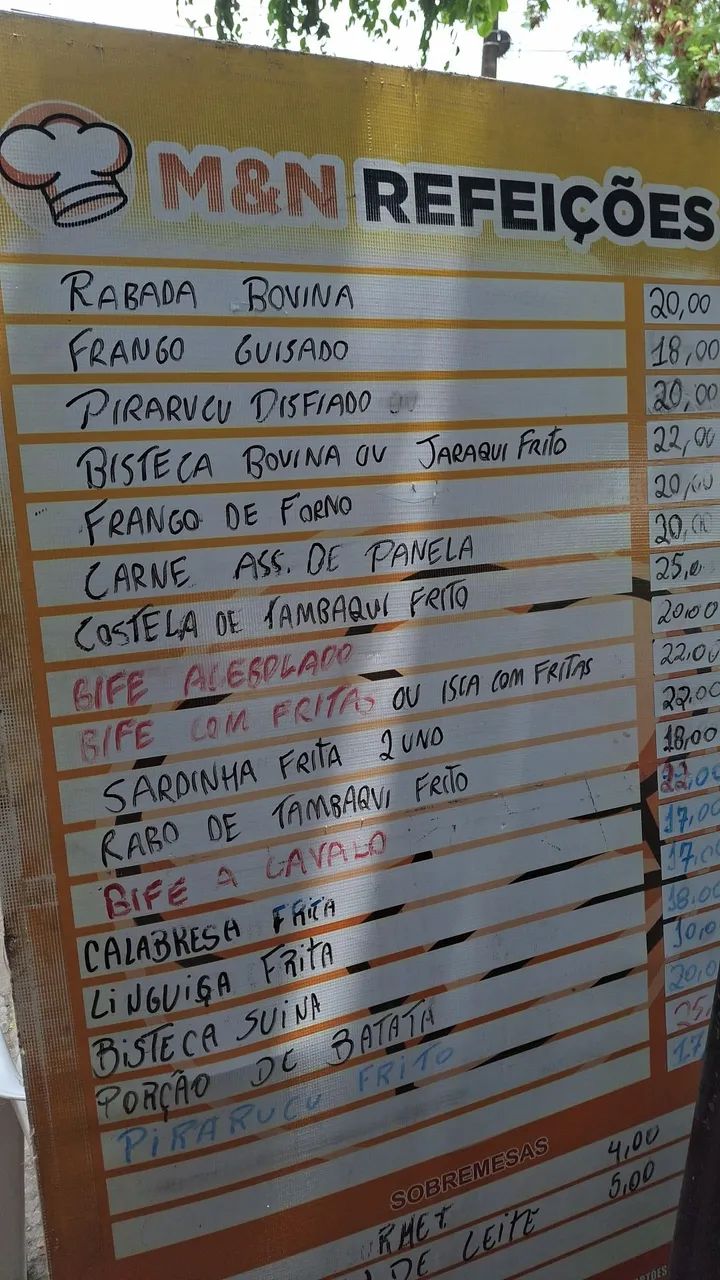 M&N REFEIÇÕES
RABADA BOVINA 20,00
FRANGO GUISADO 18,00
PIRARUCU DISFIADO 20,00
BISTECA BOVINA OU JARAQUI FRITO 22,00
FRANGO DE FORNO 20,00
CARNE ASS. DE PANELA 20,00
COSTELA DE TAMBAQUI FRITO 25,0
BIFE ACEBOLADO 20,00
BIFE COM FRITAS OU ISCA COM FRITAS 22,00
SARDINHA FRITA 2 UND 22,00
RABO DE TAMBAQUI FRITO 18,00
BIFE A CAVALO 22,00
CALABRESA FRITA 17,00
LINGUIÇA FRITA 17,00
BISTECA SUINA 18,00
PORÇÃO DE BATATA 10,0
PIRARUCU FRITO 20,0
25,
17
SOBREMESAS
RMET 4,00
DE LEITE 5,00